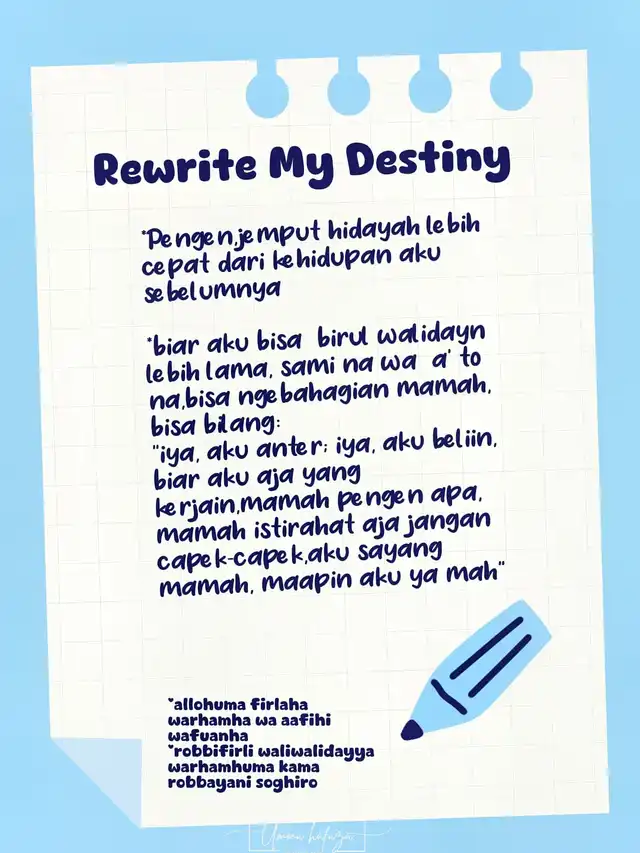 Rewrite My Destiny
*Pengen,jemput hidayah lebih
cepat dari kehidupan aku
sebelumnya
*biar aku bisa birul walidayn
lebih lama, sami na wa a' to
na,bisa ngebahagian mamah,
bisa bilang:
"iya, aku anter; iya, aku beliin,
biar aku aja yang
kerjain,mamah pengen apa,
mamah istirahat aja jangan
capek-capek,aku sayang
mamah, maapin aku ya mah"
*allohuma firlaha
warhamha wa aafihi
wafuanha
*robbifirli waliwalidayya
warhamhuma kama
robbayani soghiro